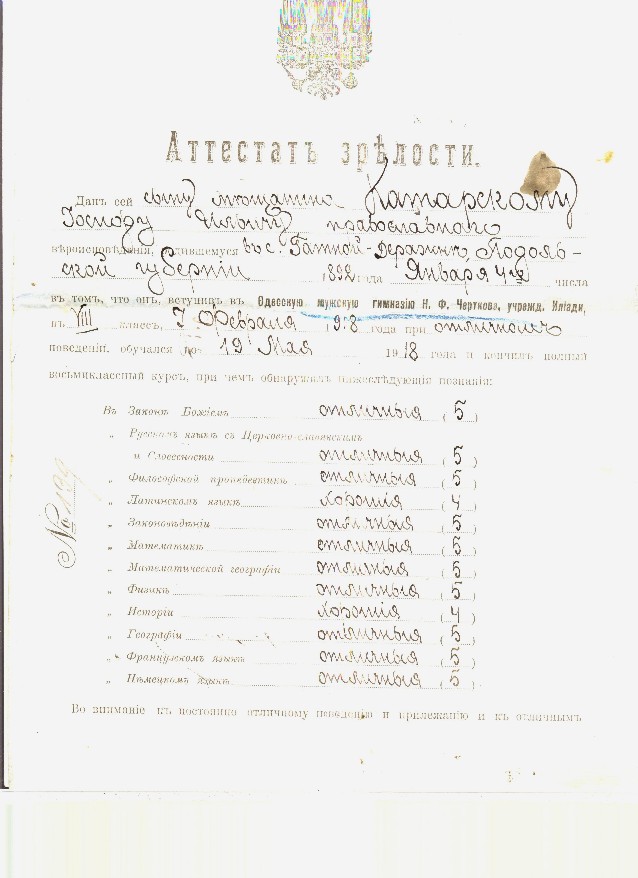 Аттестатъ зрѣлости.
Данъ сей сыну мѣщанина Катарскому
православнаго
вѣроисповѣданія, родившемуся въ с. Гатной-Деражнѣ, Подоль-
ской губерніи 1892 года Января 4 числа
въ томъ, что онъ, вступивъ въ Одесскую мужскую гимназію Н. Ф. Черткова, учрежд. Иліади,
въ VIII классъ, 7 Февраля 1918 года при отличномъ
поведеніи обучался по 19 Мая 1918 года и кончилъ полный
восьмиклассный курсъ, при чемъ обнаружилъ нижеслѣдующія познанія:
Въ Законѣ Божіемъ отличныя (5)
„ Русскомъ языкѣ съ Церковно-славянскимъ
и Словесности отличныя (5)
„ Философской пропедевтикѣ отличныя (5)
„ Латинскомъ языкѣ хорошія (4)
„ Законовѣдѣніи отличныя (5)
„ Математикѣ отличныя (5)
„ Математической географіи отличныя (5)
„ Физикѣ отличныя (5)
„ Исторіи хорошія (4)
„ Географіи отличныя (5)
„ Французскомъ языкѣ отличныя (5)
„ Нѣмецкомъ языкѣ отличныя (5)
Во вниманіе къ постоянно отличному поведенію и прилежанію и къ отличнымъ
№ 199